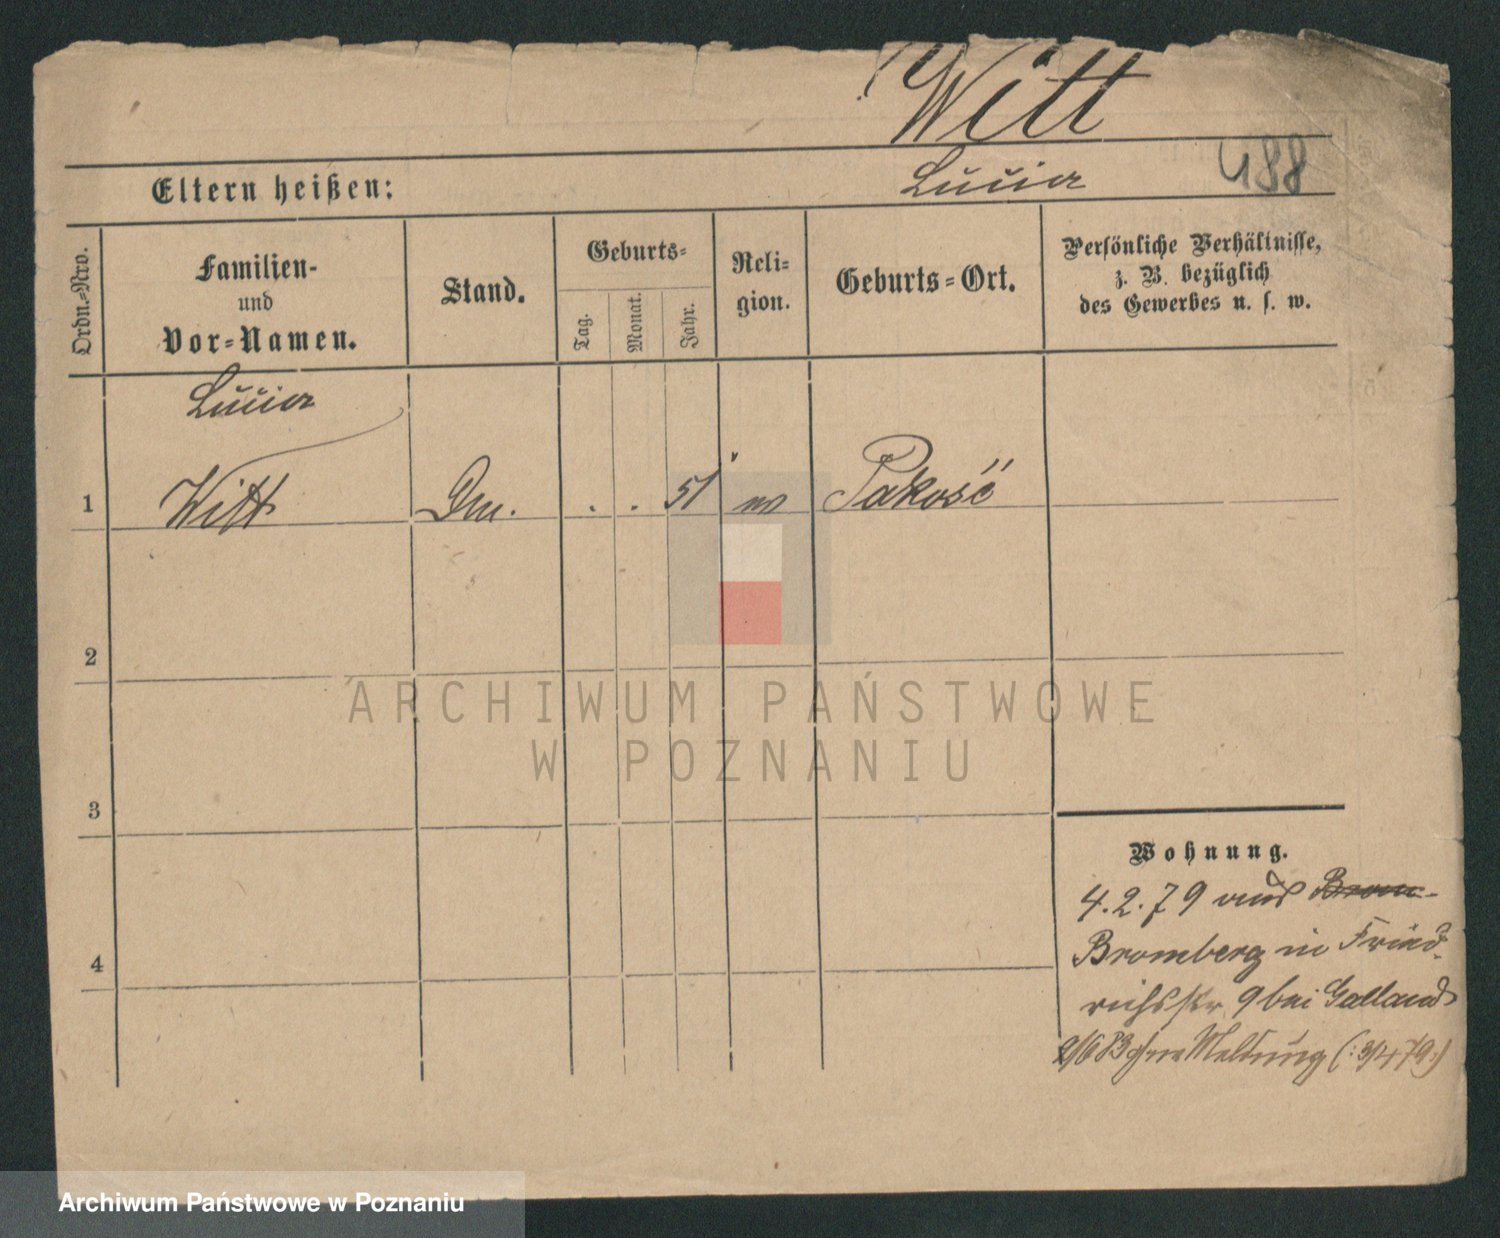 Witt
Lucia
488
Eltern heißen:
Ordn.-Nro.
Familien-
und
Vor-Namen.
Stand.
Geburts-
Tag.
Monat.
Jahr.
Reli-
gion.
Geburts-Ort.
Persönliche Verhältnisse,
z. B. bezüglich
des Gewerbes u. s. w.
Lucia
1 Witt . . 51 Pakość
2
3
4
Wohnung.
4.2.79 aus Brom-
Bromberg in Fried-
richsstr. 9 bei Galland
Meldung (:3/4 79:)
ARCHIWUM PAŃSTWOWE
W POZNANIU
Archiwum Państwowe w Poznaniu